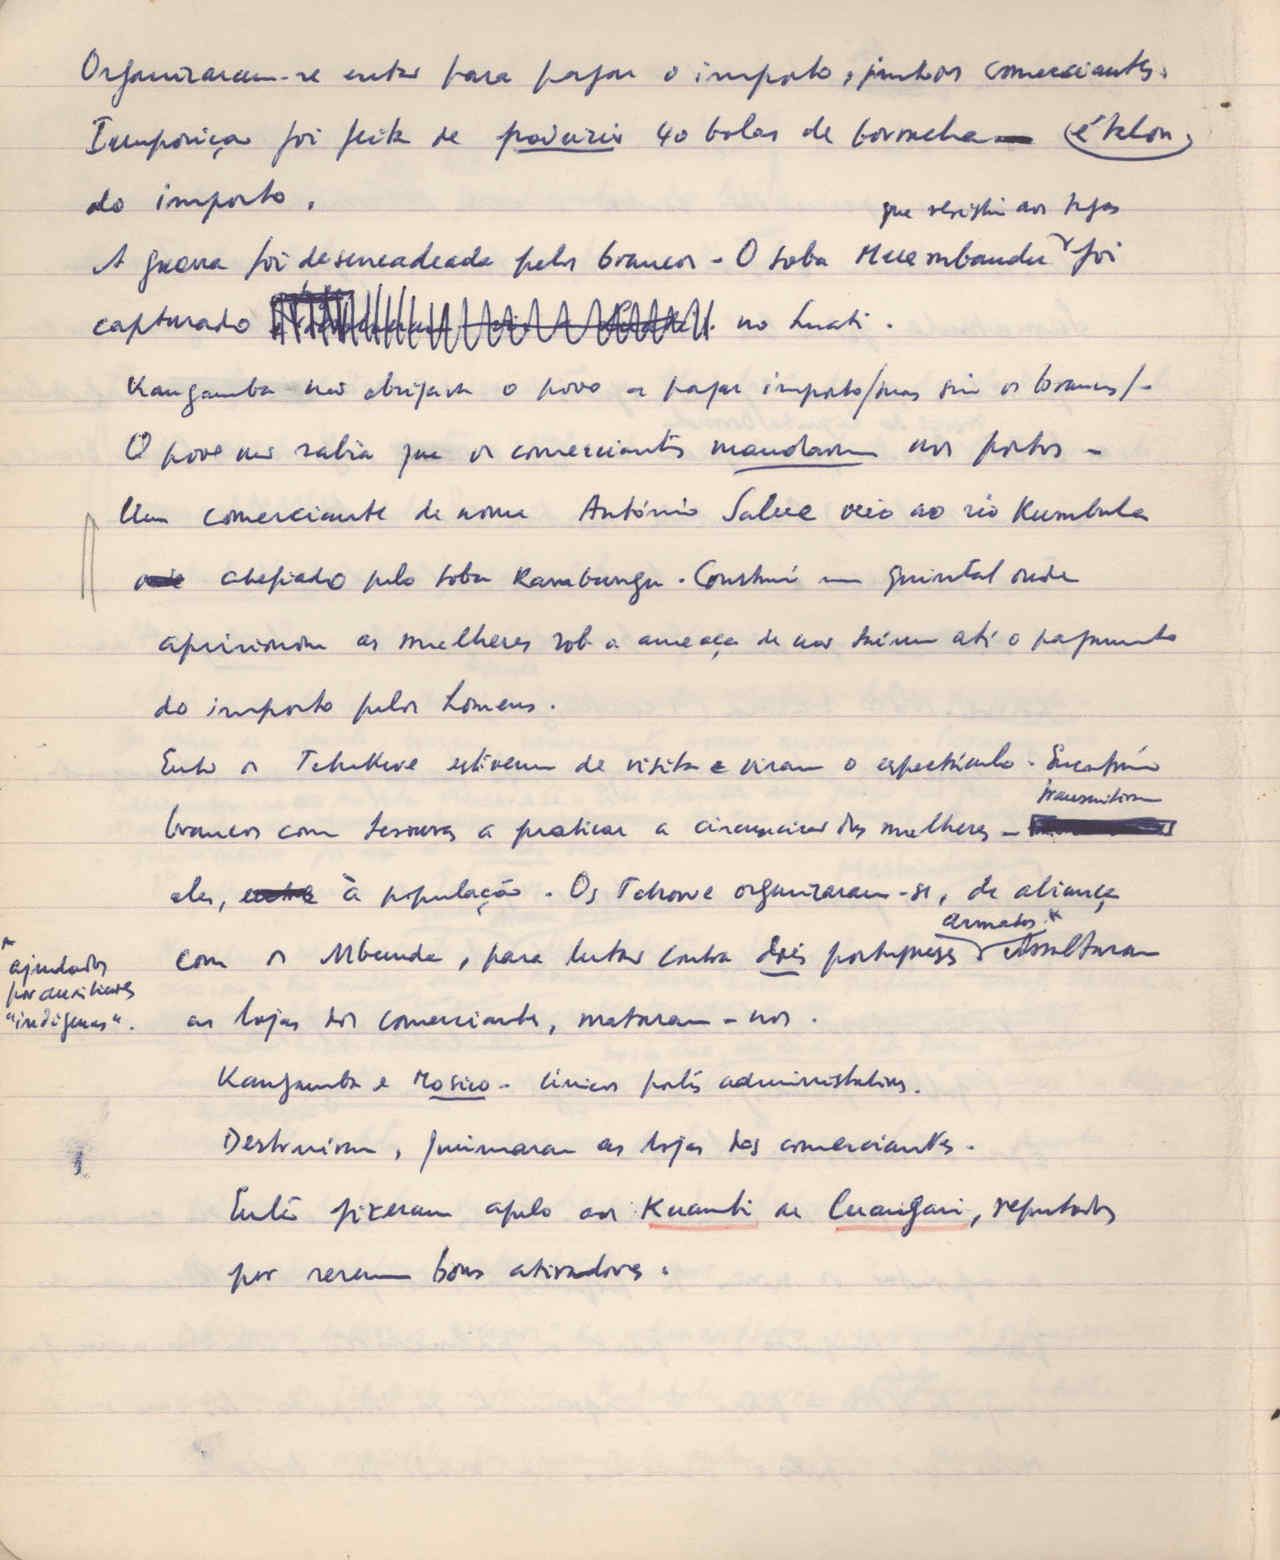 Organizaram-se entar para pagar o imposto, junto os comerciantes.
Imposiçao foi feita de produzir 40 bolas de borracha (étalon)
do imposto.
que resistiu aos tugas
A guerra foi desencadeada pelos brancos - O soba Muembandu foi
capturado no Luati.
Kangamba não obrigava o povo a pagar imposto /mas sim os brancos/-
O povo não sabia que os comerciantes mandaram nos portos -
Um comerciante de nome António Salue veio ao rio Kumbula
chefiado pelo soba Karabunga. Construí um quintal onde
aprisionou as mulheres sob a ameaça de não saírem até o pagamento
do imposto pelos homens.
Então os Tchokwe estiveram de visita e viram o espectáculo - Encontrám
brancos com tesouras a praticar a circuncisão das mulheres -
transmitiram
eles, à população. Os Tchokwe organizaram-se, de aliança
com os Mbunda, para lutar contra dois portugueses armados * Assaltaram
* ajudados
por auxiliares
"indígenas".
as lojas dos comerciantes, mataram-nos.
Kangamba e Moxico - únicos postos administrativos.
Destruiram, queimaram as lojas dos comerciantes.
Então fizeram apelo aos Kuambi de Cuangari, reputados
por serem bons atiradores.